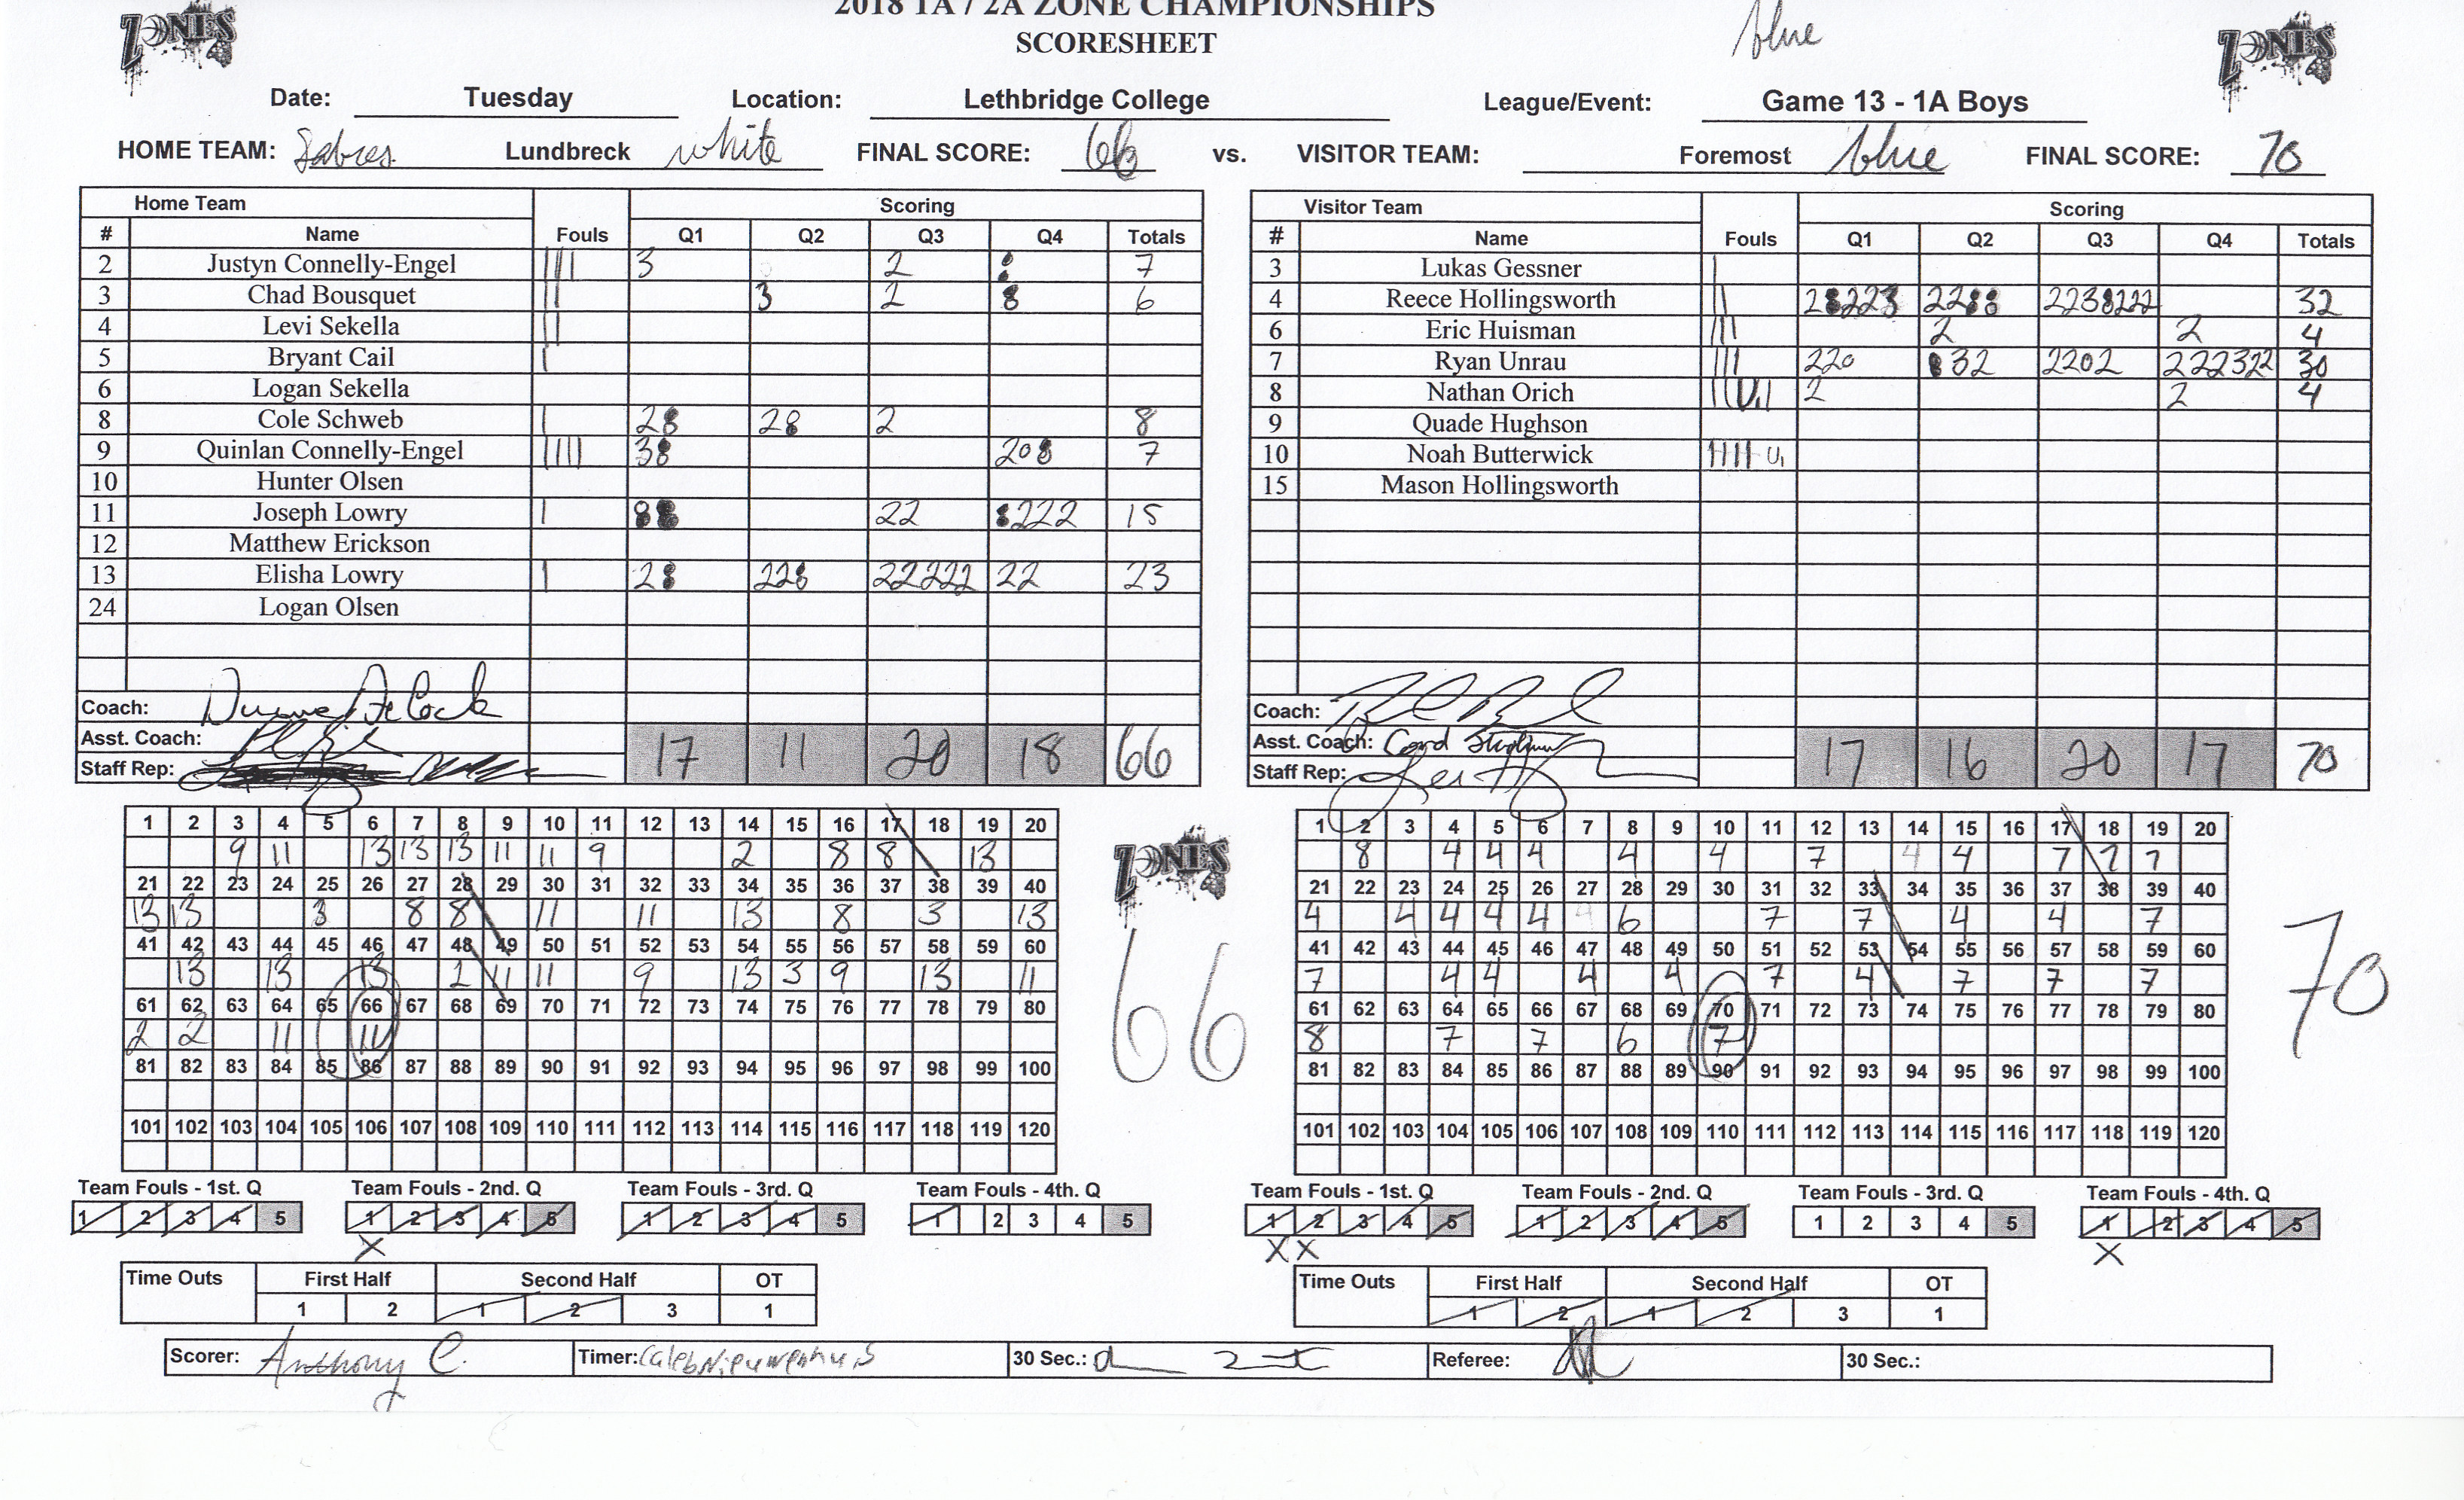 2018 1A / 2A ZONE CHAMPIONSHIPS
SCORESHEET
blue
ZONES
ZONES
Date: Tuesday Location: Lethbridge College League/Event: Game 13 - 1A Boys
HOME TEAM: Sabres Lundbreck white FINAL SCORE: 66 vs. VISITOR TEAM: Foremost blue FINAL SCORE: 70
Home Team Fouls Scoring
# Name Q1 Q2 Q3 Q4 Totals
2 Justyn Connelly-Engel 3 2 7
3 Chad Bousquet 3 2 6
4 Levi Sekella
5 Bryant Cail
6 Logan Sekella
8 Cole Schweb 2 2 2 8
9 Quinlan Connelly-Engel 3 20 7
10 Hunter Olsen
11 Joseph Lowry 22 222 15
12 Matthew Erickson
13 Elisha Lowry 2 22 22222 22 23
24 Logan Olsen
Coach:
Asst. Coach:
Staff Rep:
17 11 20 18 66
Visitor Team Fouls Scoring
# Name Q1 Q2 Q3 Q4 Totals
3 Lukas Gessner
4 Reece Hollingsworth 32
6 Eric Huisman 2 2 4
7 Ryan Unrau 220 32 2202 222322 30
8 Nathan Orich 2 2 4
9 Quade Hughson
10 Noah Butterwick
15 Mason Hollingsworth
Coach:
Asst. Coach:
Staff Rep:
17 16 20 17 70
1 2 3 4 5 6 7 8 9 10 11 12 13 14 15 16 17 18 19 20
9 11 13 13 13 11 11 9 2 8 8 13
21 22 23 24 25 26 27 28 29 30 31 32 33 34 35 36 37 38 39 40
13 13 3 8 8 11 11 13 8 3 13
41 42 43 44 45 46 47 48 49 50 51 52 53 54 55 56 57 58 59 60
13 13 13 2 11 11 9 13 3 9 13 11
61 62 63 64 65 66 67 68 69 70 71 72 73 74 75 76 77 78 79 80
2 2 11 11
81 82 83 84 85 86 87 88 89 90 91 92 93 94 95 96 97 98 99 100
101 102 103 104 105 106 107 108 109 110 111 112 113 114 115 116 117 118 119 120
ZONES
66
1 2 3 4 5 6 7 8 9 10 11 12 13 14 15 16 17 18 19 20
8 4 4 4 4 4 7 4 4 7 7 7
21 22 23 24 25 26 27 28 29 30 31 32 33 34 35 36 37 38 39 40
4 4 4 4 4 4 6 7 7 4 4 7
41 42 43 44 45 46 47 48 49 50 51 52 53 54 55 56 57 58 59 60
7 4 4 4 4 7 4 7 7 7
61 62 63 64 65 66 67 68 69 70 71 72 73 74 75 76 77 78 79 80
8 7 7 6 7
81 82 83 84 85 86 87 88 89 90 91 92 93 94 95 96 97 98 99 100
101 102 103 104 105 106 107 108 109 110 111 112 113 114 115 116 117 118 119 120
70
Team Fouls - 1st. Q Team Fouls - 2nd. Q Team Fouls - 3rd. Q Team Fouls - 4th. Q
1 2 3 4 5 1 2 3 4 5 1 2 3 4 5 1 2 3 4 5
X
Time Outs First Half Second Half OT
1 2 1 2 3 1
Team Fouls - 1st. Q Team Fouls - 2nd. Q Team Fouls - 3rd. Q Team Fouls - 4th. Q
1 2 3 4 5 1 2 3 4 5 1 2 3 4 5 1 2 3 4 5
X X X
Time Outs First Half Second Half OT
1 2 1 2 3 1
Scorer: Anthony C. Timer: Caleb Nieuwenhuis 30 Sec.: Referee: 30 Sec.: